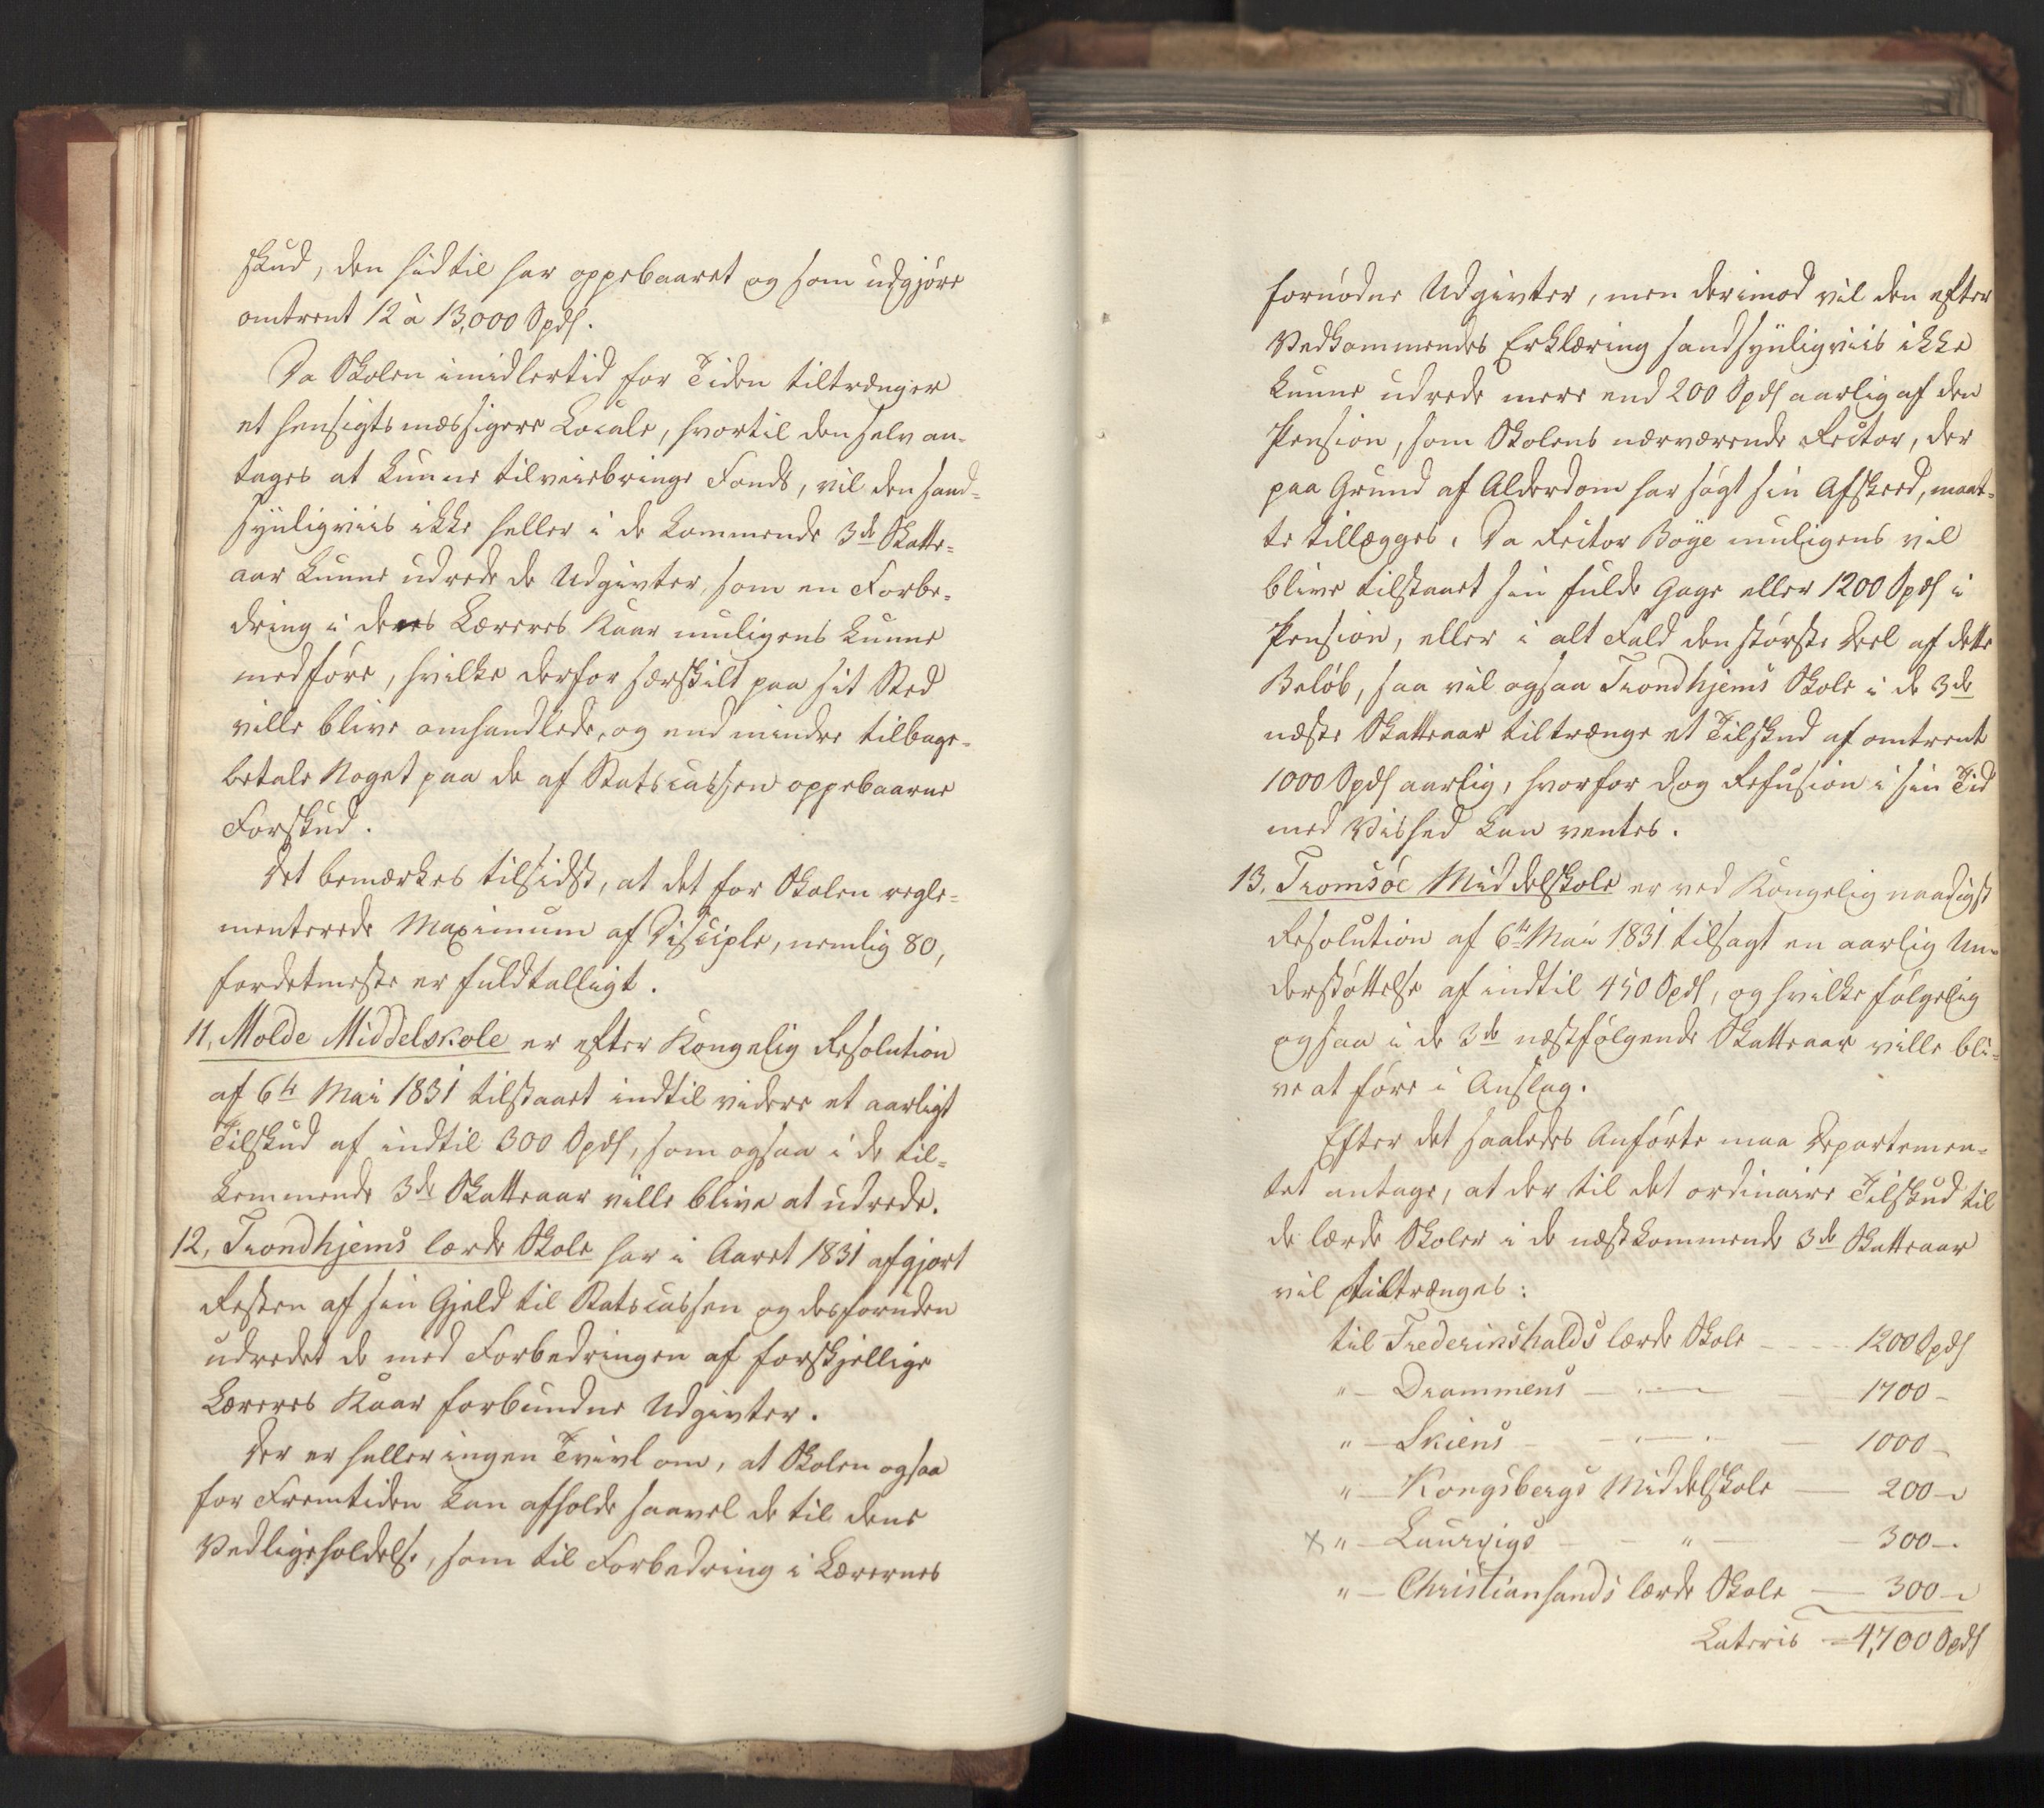 skud, den hidtil har oppebaaret og som udgjöre
omtrent 12 à 13,000 Spds.
Da Skolen imidlertid for Tiden tiltrænger
et hensigtsmæssigere Locale, hvortil den selv an-
tages at kunne tilveiebringe Fonds, vil den sand-
synligviis ikke heller i de kommende 3de Skatte-
aar kunne udrede de Udgivter, som en Forbe-
dring i deres Læreres Kaar muligens kunne
medföre, hvilke derfor særskilt paa sit Sted
ville blive omhandlede, og end mindre tilbage-
betale Noget paa de af Statscassen oppebaarne
Forskud.
Det bemærkes tilsidst, at det for Skolen regle-
menterede Maximum af Disciple, nemlig 80,
fordetmeste er fuldtalligt.
11, Molde Middelskole er efter Kongelig Resolution
af 6te Mai 1831 tilstaaet indtil videre et aarligt
Tilskud af indtil 300 Spds, som ogsaa i de til-
kommende 3de Skatteaar ville blive at udrede.
12, Trondhjems lærde Skole har i Aaret 1831 afgjort
Resten af sin Gjeld til Statscassen og desforuden
udredet de med Forbedringen af forskjellige
Læreres Kaar forbundne Udgivter.
Der er heller ingen Tvivl om, at Skolen ogsaa
for Fremtiden kan afholde saavel de til dens
Vedligeholdelse, som til Forbedring i Lærernes
fornödne Udgivter, men derimod vil den efter
Vedkommendes Erklæring sandsynligviis ikke
kunne udrede mere end 200 Spds aarlig af den
Pension, som Skolens nærværende Rector, der
paa Grund af Alderdom har sögt sin Afskeed, maat-
te tillægges. Da Rector Böye muligens vil
blive tilstaaet sin fulde Gage eller 1200 Spds i
Pension, eller i alt Fald den störste Deel af dette
Belöb, saa vil ogsaa Trondhjems Skole i de 3de
næste Skatteaar tiltrænge et Tilskud af omtrent
1000 Spds aarlig, hvorfor dog Refusion i sin Tid
med Vished kan ventes.
13, Tromsöe Middelskole er ved Kongelig naadigst
Resolution af 6te Mai 1831 tilsagt en aarlig Un-
derstöttelse af indtil 450 Spds, og hvilke fölgelig
ogsaa i de 3de næstfölgende Skatteaar ville bli-
ve at före i Anslag.
Efter det saaledes Anförte maa Departemen-
tet antage, at der til det ordinaire Tilskud til
de lærde Skoler i de næstkommende 3de Skatteaar
vil tiltrænges:
til Frederikshalds lærde Skole - - - - 1200 Spds
" - Drammens - " - - 1700 -
" - Skiens - - " - - 1000 -
" - Kongsbergs Middelskole - 200 -
x " - Laurvigs - - " - - 300 -
" - Christiansands lærde Skole - 300 -
Lateris - 4,700 Spds